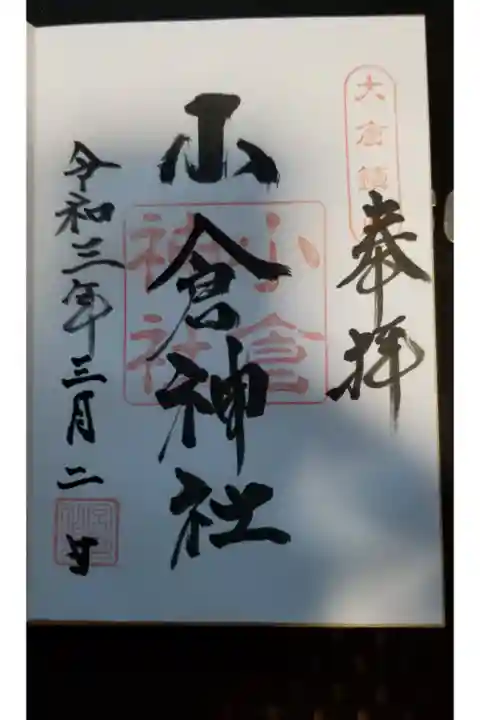 大倉鎮
奉拝
小倉神社
小倉
神社
令和三年三月二